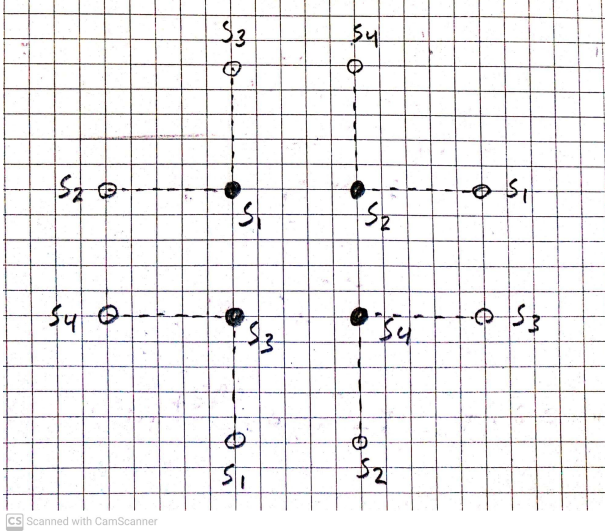 S3 S4
S2 S1
S1 S2
S4 S3
S3 S4
S1 S2
CS Scanned with CamScanner